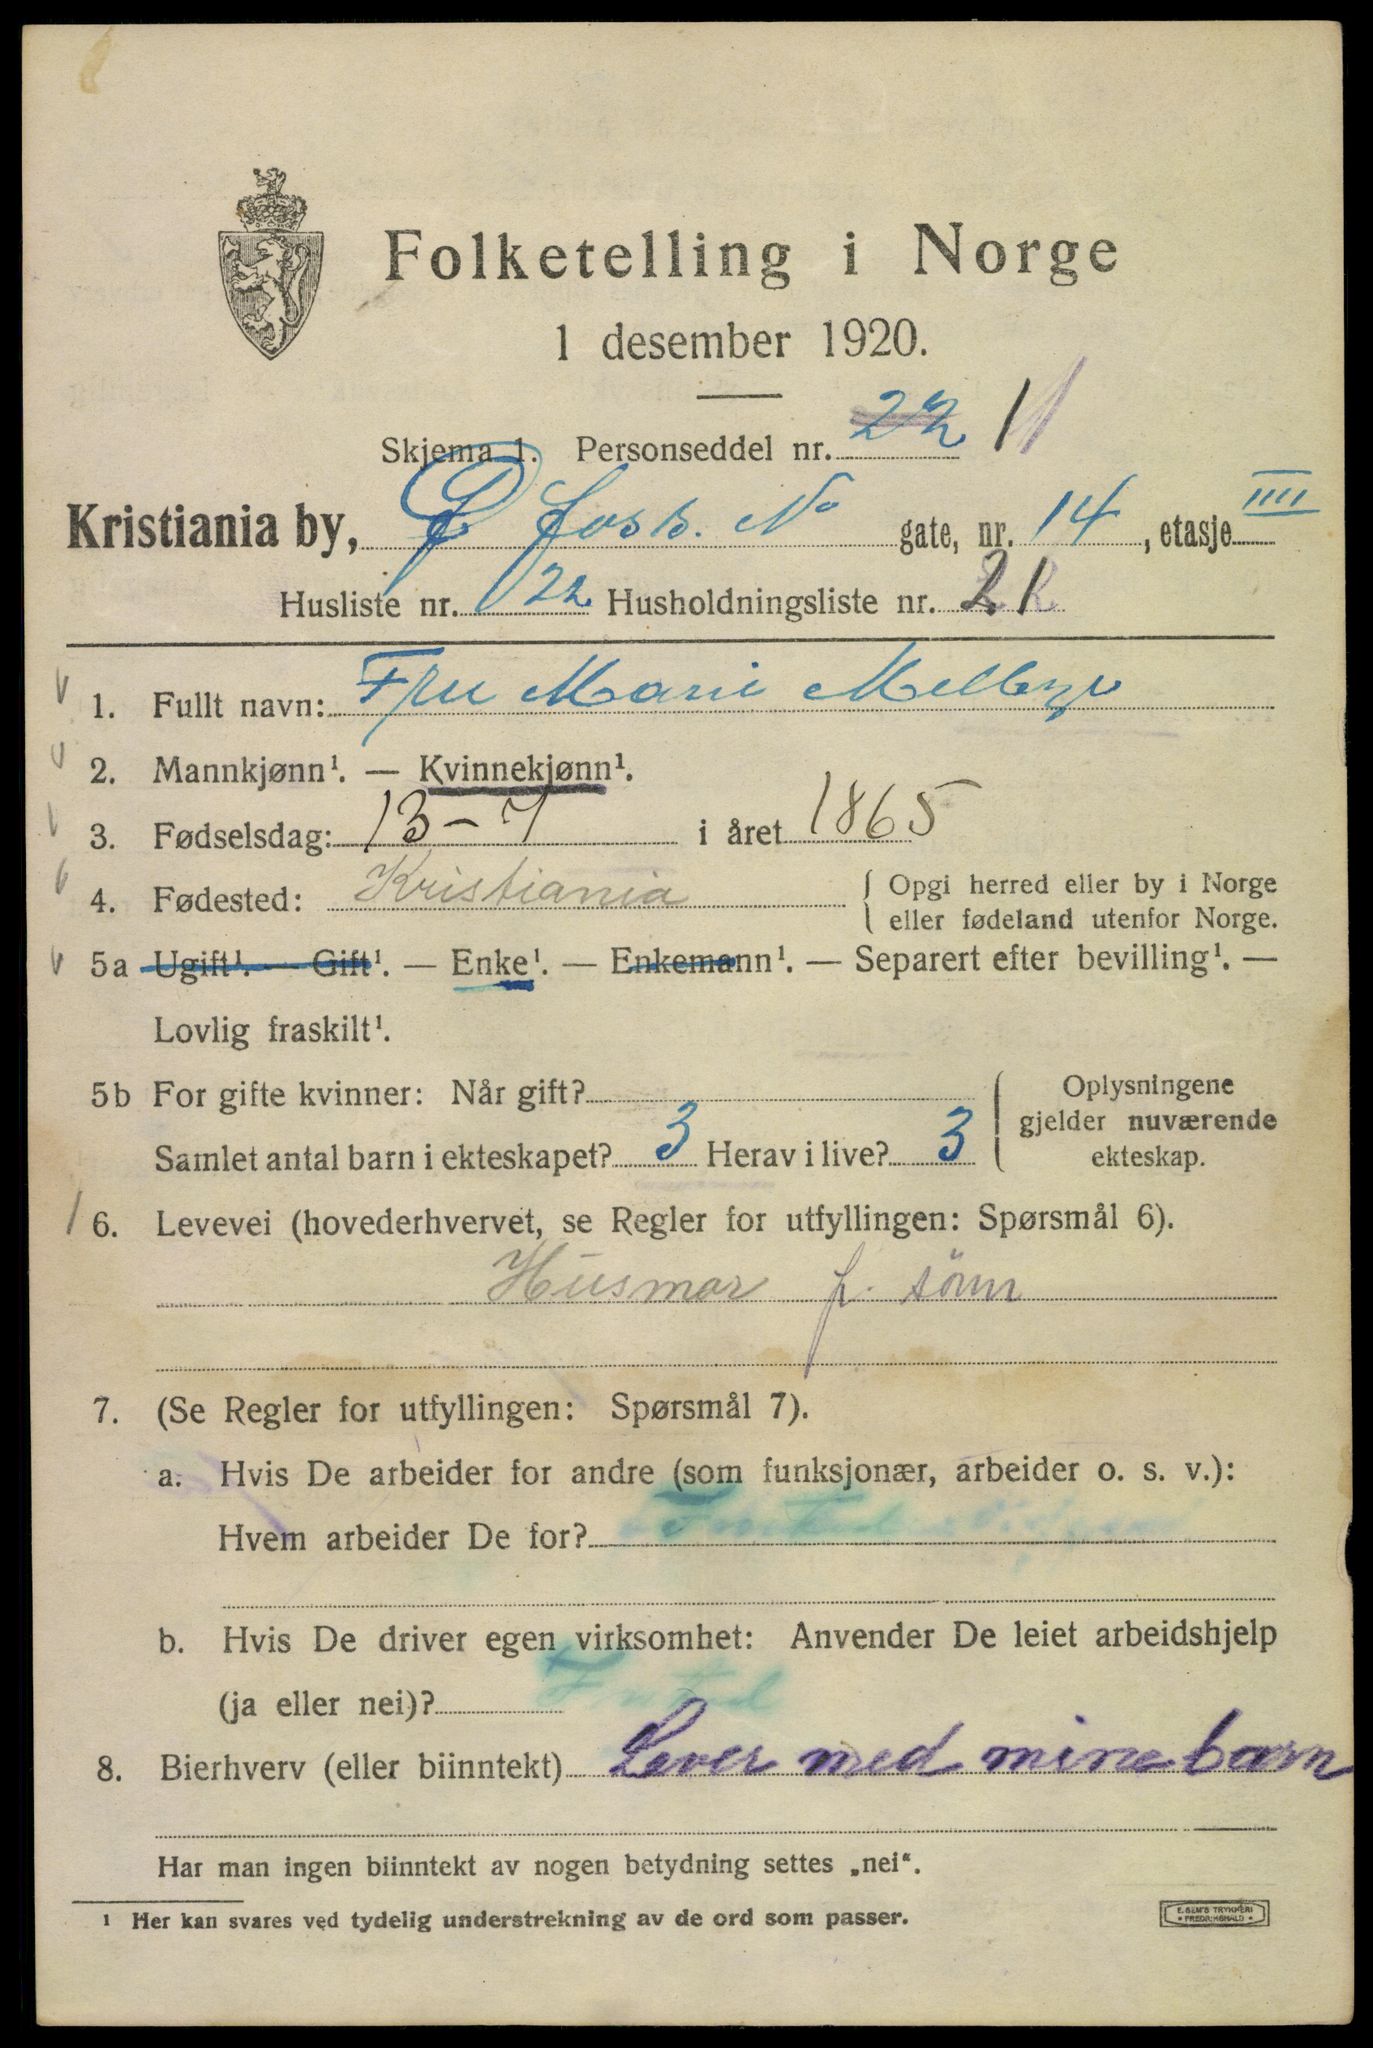 Folketelling i Norge
1 desember 1920.
Skjema 1. Personseddel nr. 22 11
Kristiania by, gate, nr. 14, etasje IIII
Husliste nr. 22 Husholdningsliste nr. 21
1. Fullt navn: Fru Marie Melbye
2. Mannkjønn¹. — Kvinnekjønn¹.
3. Fødselsdag: 13-7 i året 1865
4. Fødested: Kristiania { Opgi herred eller by i Norge
eller fødeland utenfor Norge.
5a Ugift¹. — Gift¹. — Enke¹. — Enkemann¹. — Separert efter bevilling¹. —
Lovlig fraskilt¹.
5b For gifte kvinner: Når gift?
Samlet antal barn i ekteskapet? 3 Herav i live? 3
Oplysningene
gjelder nuværende
ekteskap.
6. Levevei (hovederhvervet, se Regler for utfyllingen: Spørsmål 6).
Husmor f. sönn
7. (Se Regler for utfyllingen: Spørsmål 7).
a. Hvis De arbeider for andre (som funksjonær, arbeider o. s. v.):
Hvem arbeider De for?
b. Hvis De driver egen virksomhet: Anvender De leiet arbeidshjelp
(ja eller nei)?
8. Bierhverv (eller biinntekt) Lever med mine barn
Har man ingen biinntekt av nogen betydning settes „nei“.
¹ Her kan svares ved tydelig understrekning av de ord som passer.
E. SEM'S TRYKKERI
• FREDRIKSHALD •